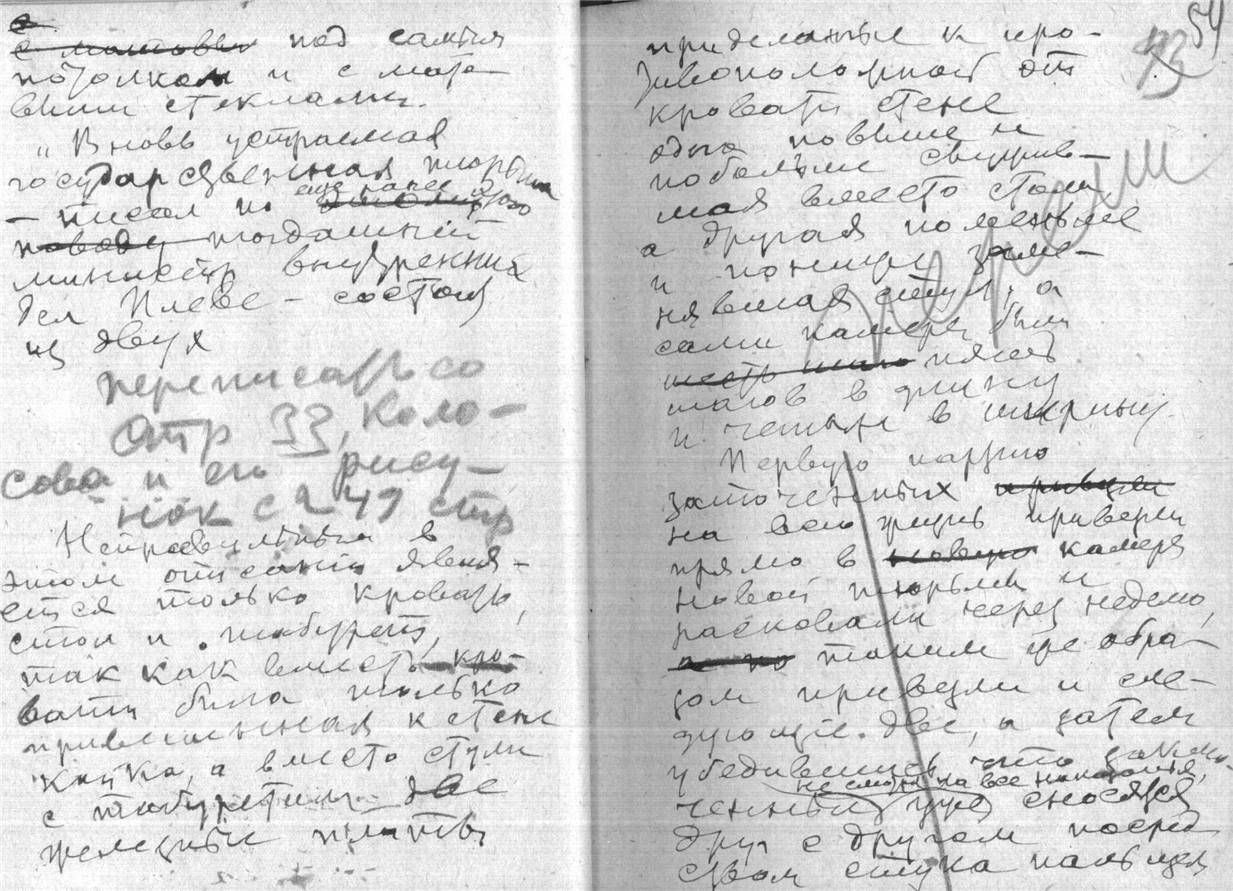 с матовы под самым
потолком и с мато-
выми стеклами.
„Вновь устраемая
государственная тюрьма
еще ранее этого
– писал по
поводу тогдашний
министр внутренних
дел Плеве – состоит
из двух
переписать со
стр 33, Коло-
сова и его рису-
нок с 249 стр
Неправильны в
этом описании явля-
ется только кровать,
стол и табурет,
так как вместо кро-
вати была только
привешенная к стене
койка, а вместо стула
с табуретом две
железные плиты
54
73
приделаные к про-
тивоположной от
кровати стене
одна повыше и
побольше служив-
шая вместо стола
а другая поменьше
и пониже заме-
нявшая стул, а
сами камеры были
шесть пять
шагов в длину
и четыре в ширину.
Первую партию
заточенных привезли
на всю жизнь привезли
прямо в новую камеры
новой тюрьмы и
расковали через неделю,
а по таким же обра-
зом привезли и сле-
дующие две, а затем
убедившись что заклю-
не смотря на все наказания,
ченные уже сносятся
друг с другом посред
ством стука пальцем